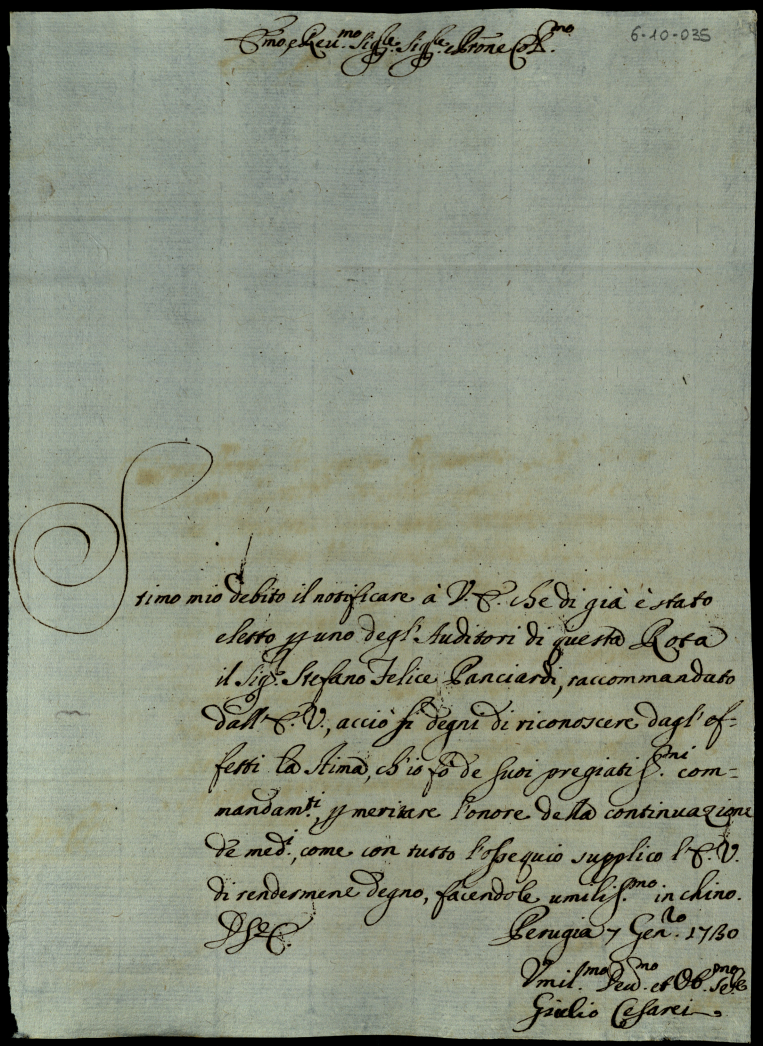 6-10-035
Em̃o, e Reu.mo Sig.re Sig.re e Prone Col.mo
Stimo mio debito il notificare à V. E. che di già è stato
eletto p uno degl'Auditori di questa Rota
il Sig.r Stefano Felice Panciardi, raccommandato
dall'E. V., acciò si degni di riconoscere dagl'ef=
fetti la stima, ch'io fò de suoi pregiatiss.mi com=
mandam.ti, p meritare l'onore della continuazione
de med.i, come con tutto l'ossequio supplico l'E. V.
di rendermene degno, facendole umiliss.mo inchino.
Perugia 7 Gen.ro 1730
Vmil.mo Deu.mo et Ob.mo Se.re
Giulio Cesarei